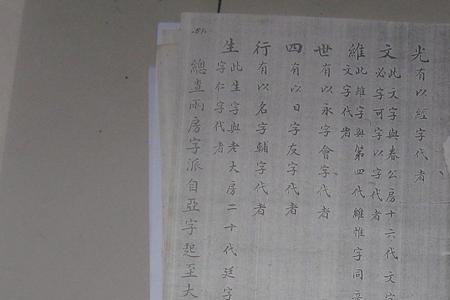 光有以經字代者
文此文字與春公房十六代文字
必字可字以字代者
維此維字與第四代維惟字同
文字代者
世有以永字會字代者
四有以日字友字代者
行有以名字輔字代者
生此生字與老大房二十代廷字
字仁字代者
總查兩房字派自亞字起至大